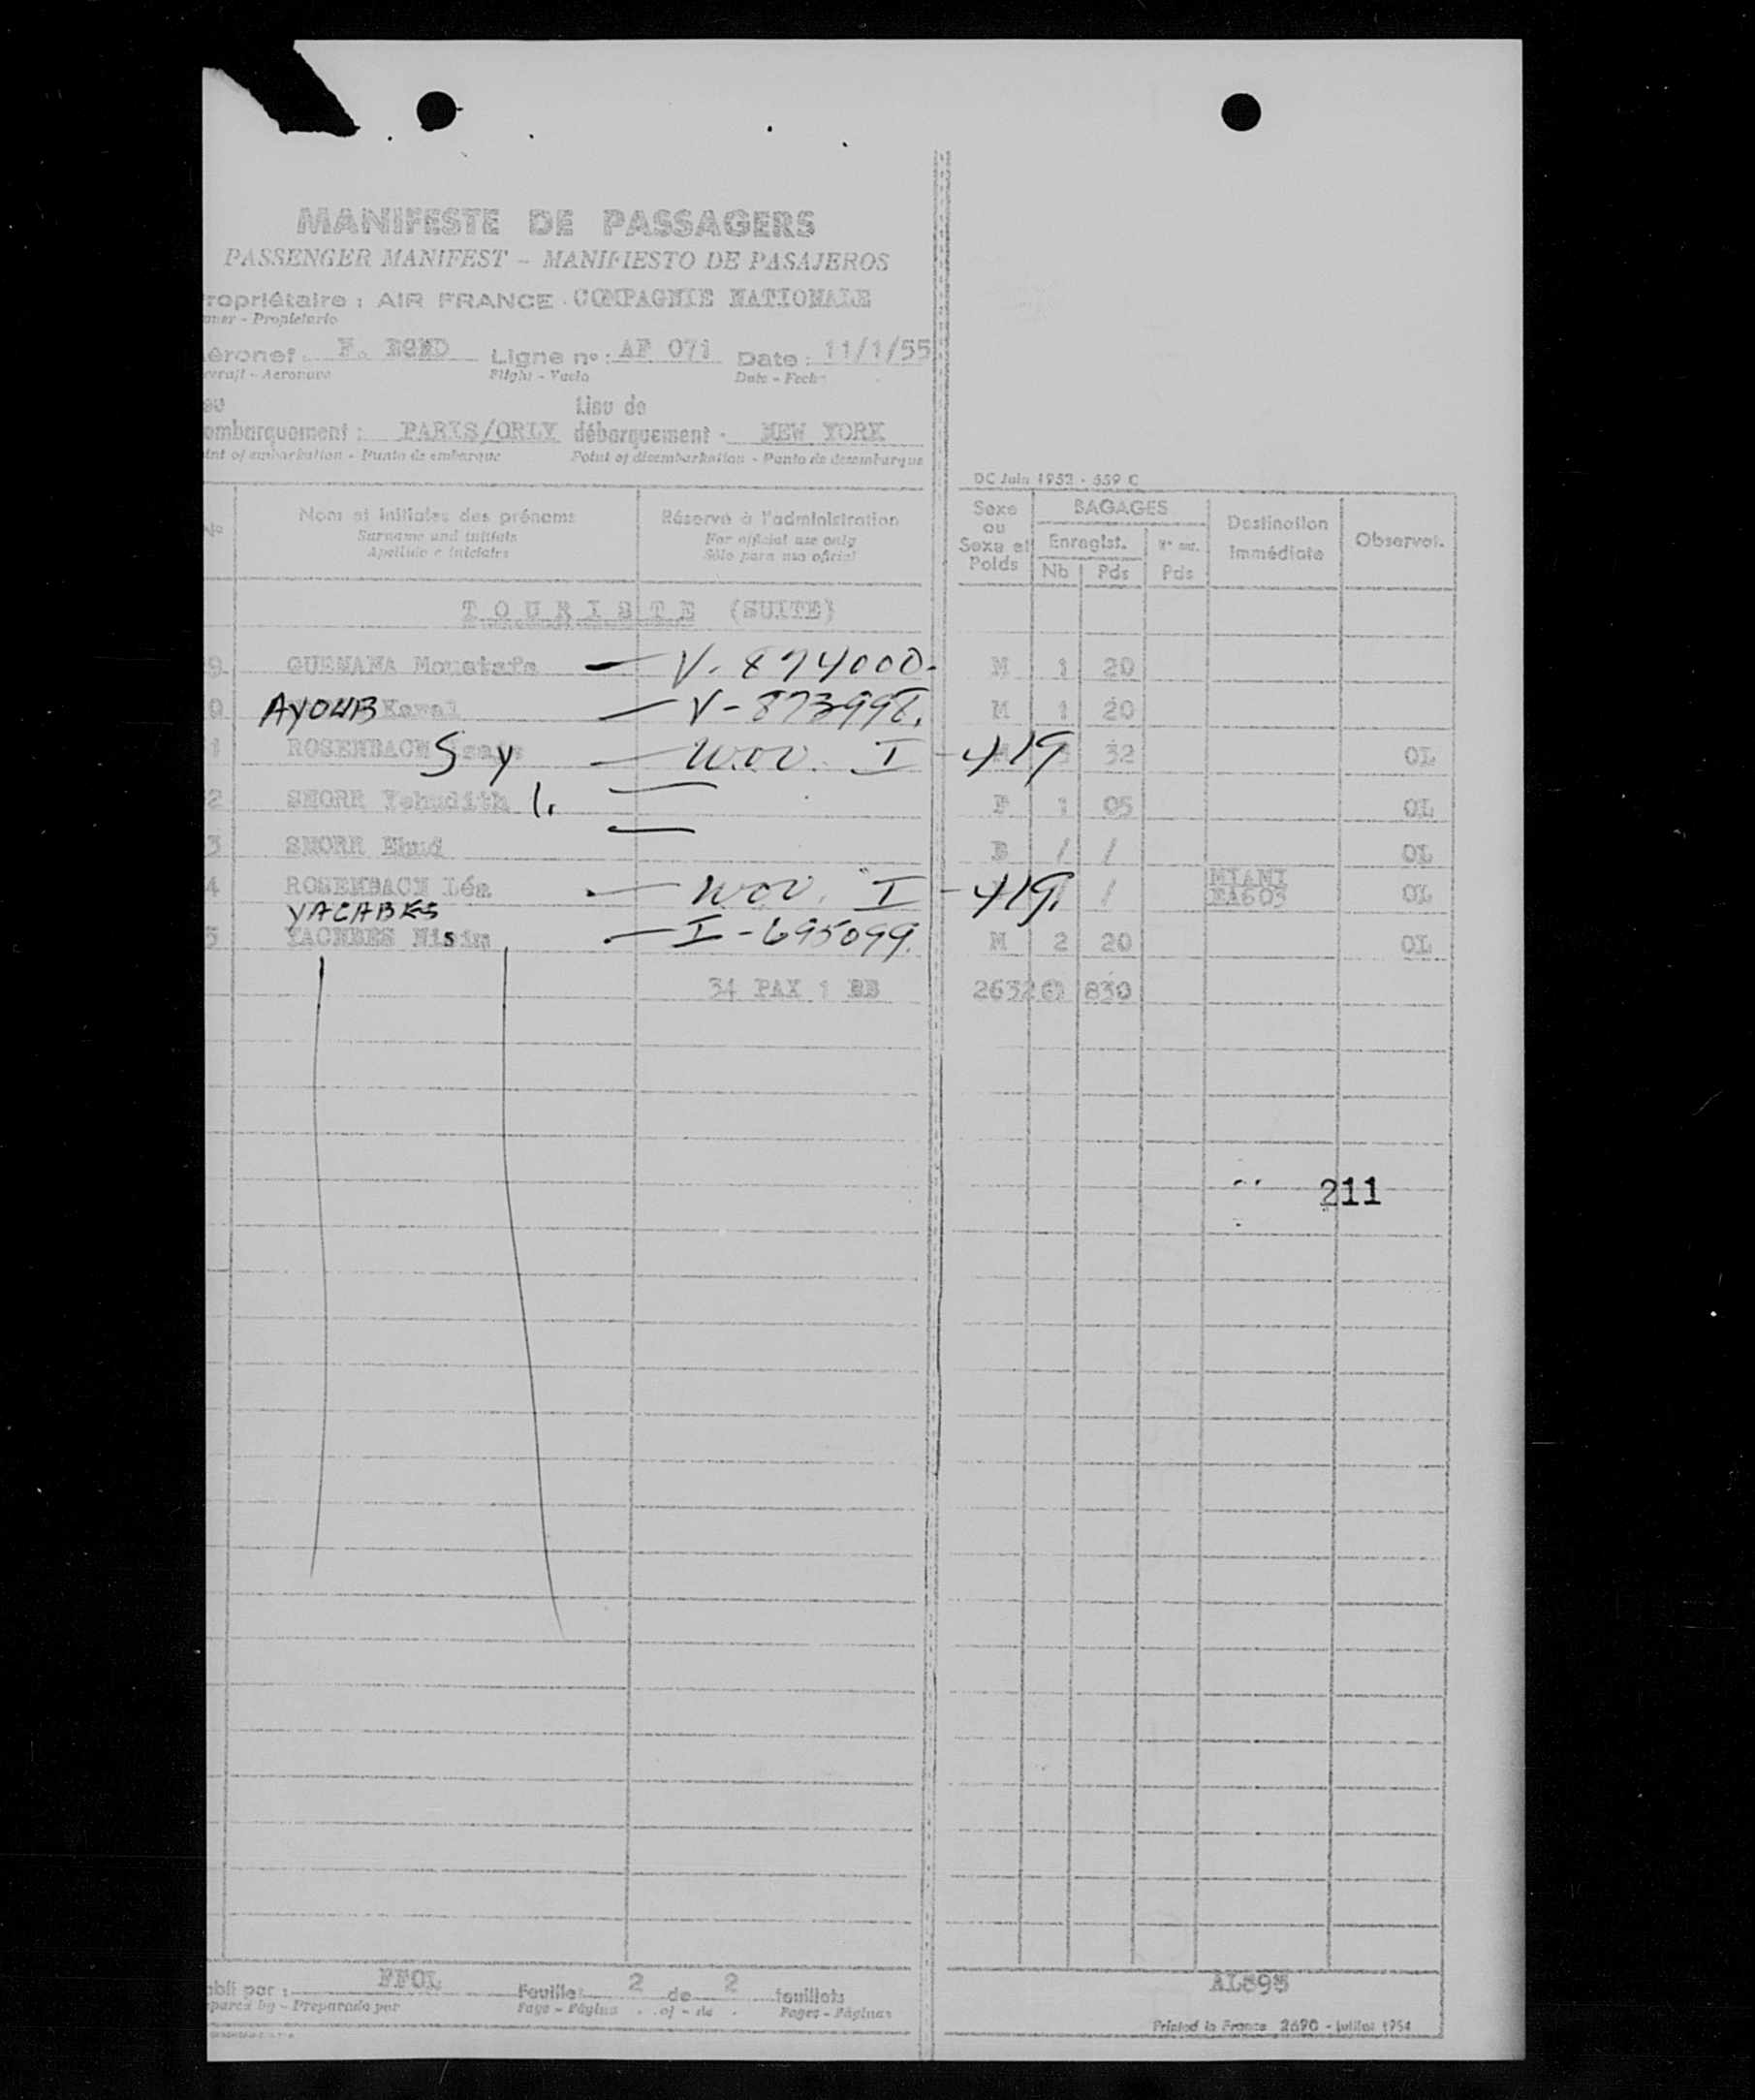 MANIFESTE DE PASSAGERS
PASSENGER MANIFEST - MANIFIESTO DE PASAJEROS
ropriétaire : AIR FRANCE - COMPAGNIE NATIONALE
ner - Propietario
éronef : F. BGND Ligne n° : AF 071 Date : 11/1/55
craft - Aeronave Flight - Vuelo Date - Fecha
Lieu de
embarquement : PARIS/ORLY débarquement - NEW YORK
int of embarkation - Punto de embarque Point of disembarkation - Punto de desembarque
DC Juin 1952 - 559 C
N° Nom et initiales des prénoms Réservé à l'administration Sexe ou Sexe et Poids BAGAGES Destination Immédiate Observat.
Surname and initials For official use only Enregist. N° enr.
Apellido e iniciales Sólo para uso oficial Nb Pds Pds
TOURISTE (SUITE)
9 GUENANA Moustafa — V-874000. M 1 20
0 AYOUB Kamal — V-873998. M 1 20
1 ROSENBACH S y — Wov. I-419 32 OL
2 SHORR Yehudith 1. — F 1 05 OL
3 SHORR Ehud — B / / OL
4 ROSENBACH Léa — Wov. I-419. / MIANI EA603 OL
YACABES
5 YACHBES Nisim — I-695099. M 2 20 OL
34 PAX 1 BB 2632 830
211
abli par : FFOL Feuillet 2 de 2 feuillets AL895
pared by - Preparado por Page - Página of - de Pages - Páginas
Printed in France 2690 - juillet 1954